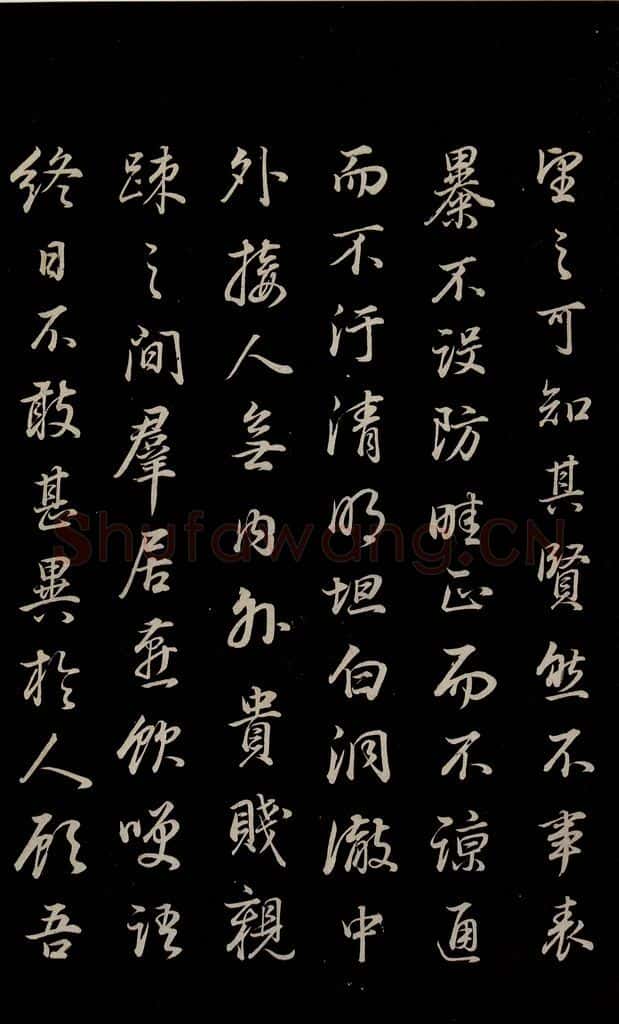 望之可知其賢然不事表
暴不設防畦正而不諒通
而不汙清明坦白洞澈中
外接人無內外貴賤親
踈之間羣居燕飲啽語
終日不敢甚異於人顧吾
Shufawang.CN